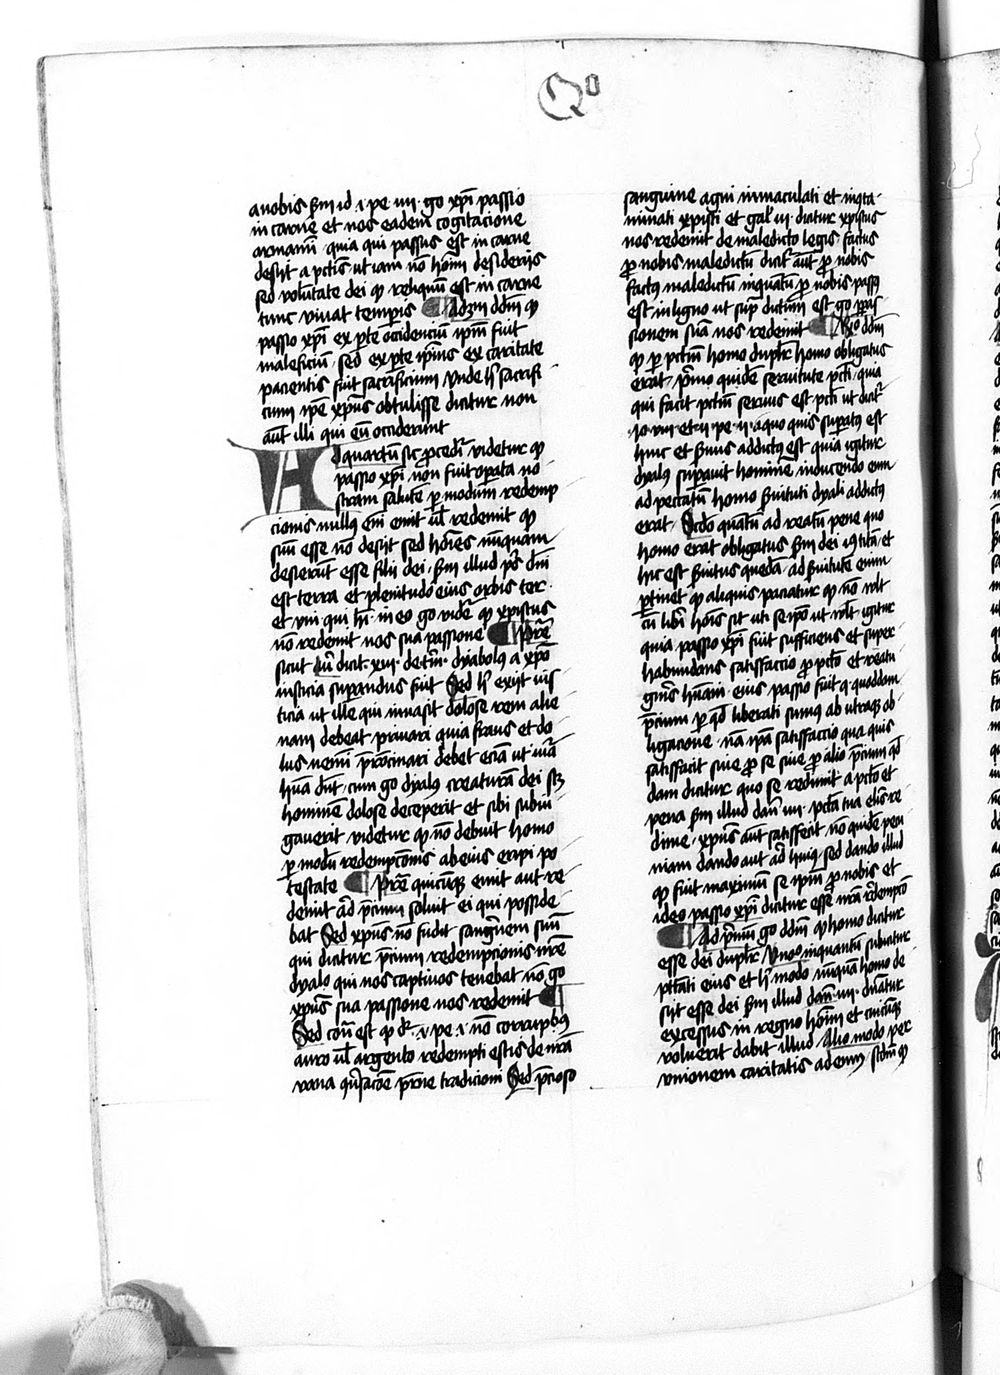 Qo
a nobis scd'm id ·i· pe ·iiii· go xp̄i passio
in carne et nos eadem cogitacione
armami · quia qui passus est in carne
desijt a pctis · ut iam nō hoīm desiderijs
sed volūtate dei qd reliquū est in carne
tunc vivat temporis Ad 3m ddm qd
passio xp̄i ex pte occidenciū ipm̄ fuit
maleficiū · sed ex pte ipius ex caritate
pacientis fuit sacrificium Unde h' sacrifi
cium ipe xpūs obtulisse dicitur non
aūt illi qui eū occiderunt
Ad quartū sic procedit' videtur qd
passio xp̄i non fuit operata no
stram salutē per modum redemp
cionis nullus em̄ emit ul' redemit qd
suū esse nō desijt sed hoīes nūquam
desierūt esse filii dei · scd'm illud ps' dm̄
est terra et plenitudo eius orbis ter
et vni qui hī · in eo go vidē qd xpistus
nō redemit nos sua passione Pretē
sicut au' dicit · xiii · de tri' · dyabolus a xpō
iusticia supandus fuit Sed h' exijt ius
ticia ut ille qui invasit dolose rem alie
nam debeat privari quia fraus et do
lus nemini pat'ocinari debet eciā ut iura
huāa dnt · cum go dyalus creaturā dei scz
hominē dolose deceperit et sibi subiu
gaverit videtur qd nō debuit homo
per modū redempcōnis ab eius eripi po
testate Pretē quicūqz emit aut re
demit ad p̄cium soluit ei qui posside
bat Sed xpūs nō fudit sangīnem suū
qui dicitur p̄cium redempcionis nrē
dyalo qui nos captivos tenebat · nō go
xpūs sua passione nos redemit
Sed cont' est qd dr' · i · pe · i · nō corrupbus
auro ul' argento redempti estis de vra
vana cōusacōe p̄rne tradicioni Sed p̄cioso
sanguine agni immaculati et inqta
minati xpisti et gal' iii · dicitur xpistus
nos redemit de maledicto legis · factus
pro nobis maledictū dicit' aūt pro nobis
factus maledictū inquantū pro nobis passus
est in ligno ut sup' dictum est go per pas
sionem suā nos redemit Rn̄o ddm
qd per pctum homo dupl'r homo obligatus
erat · primo quidē servitute pcti · quia
qui facit pctum servus est pcti ut dicit'
·io· viii · et · ii · pe · ii · a quo quis supatus est
huic et s'vus addictus est quia igitur
dyalus supavit hominē inducendo eum
ad peccatū homo s'vituti dyali addictus
erat · Scdo quātū ad reatū pene quo
homo erat obligatus scd'm dei iusticiā · et
hic est s'vitus quedā · ad s'vitutē enim
ptinet qd aliquis paciatur qd nō vult
cū liberi hoīs sit uti seipō ut vult igitur
quia passio xp̄i fuit sufficiens et super
habundans satisfaccio pro pcto et reatu
gn̄is huāni eius passio fuit q · quoddam
p̄cium per qd liberati sumus ab utraqz ob
ligacione · nā ipā satisfaccio qua quis
satisfacit sive pro se sive pro alio p̄cium qd
dam dicitur quo se redimit a pcto et
pena scd'm illud dan' iiii · pcta tua elīs re
dime · xpūs aūt satisfecit nō quidē pecu
niam dando aut ad huius · sed dando illud
qd fuit maximū se ipm̄ pro nobis et
ideo passio xp̄i dicitur esse nrā redempcō
Ad primū go ddm̄ qd homo dicitur
esse dei dupl'r Uno inquantū subicitur
ptāti eius et h' modo nūquā homo de
sijt esse dei scd'm illud dan' · iiii · dn̄atur
excessus in regno hoīm et cuicūqz
voluerit dabit illud Alio modo per
unionem caritatis ad eum scd'm qd